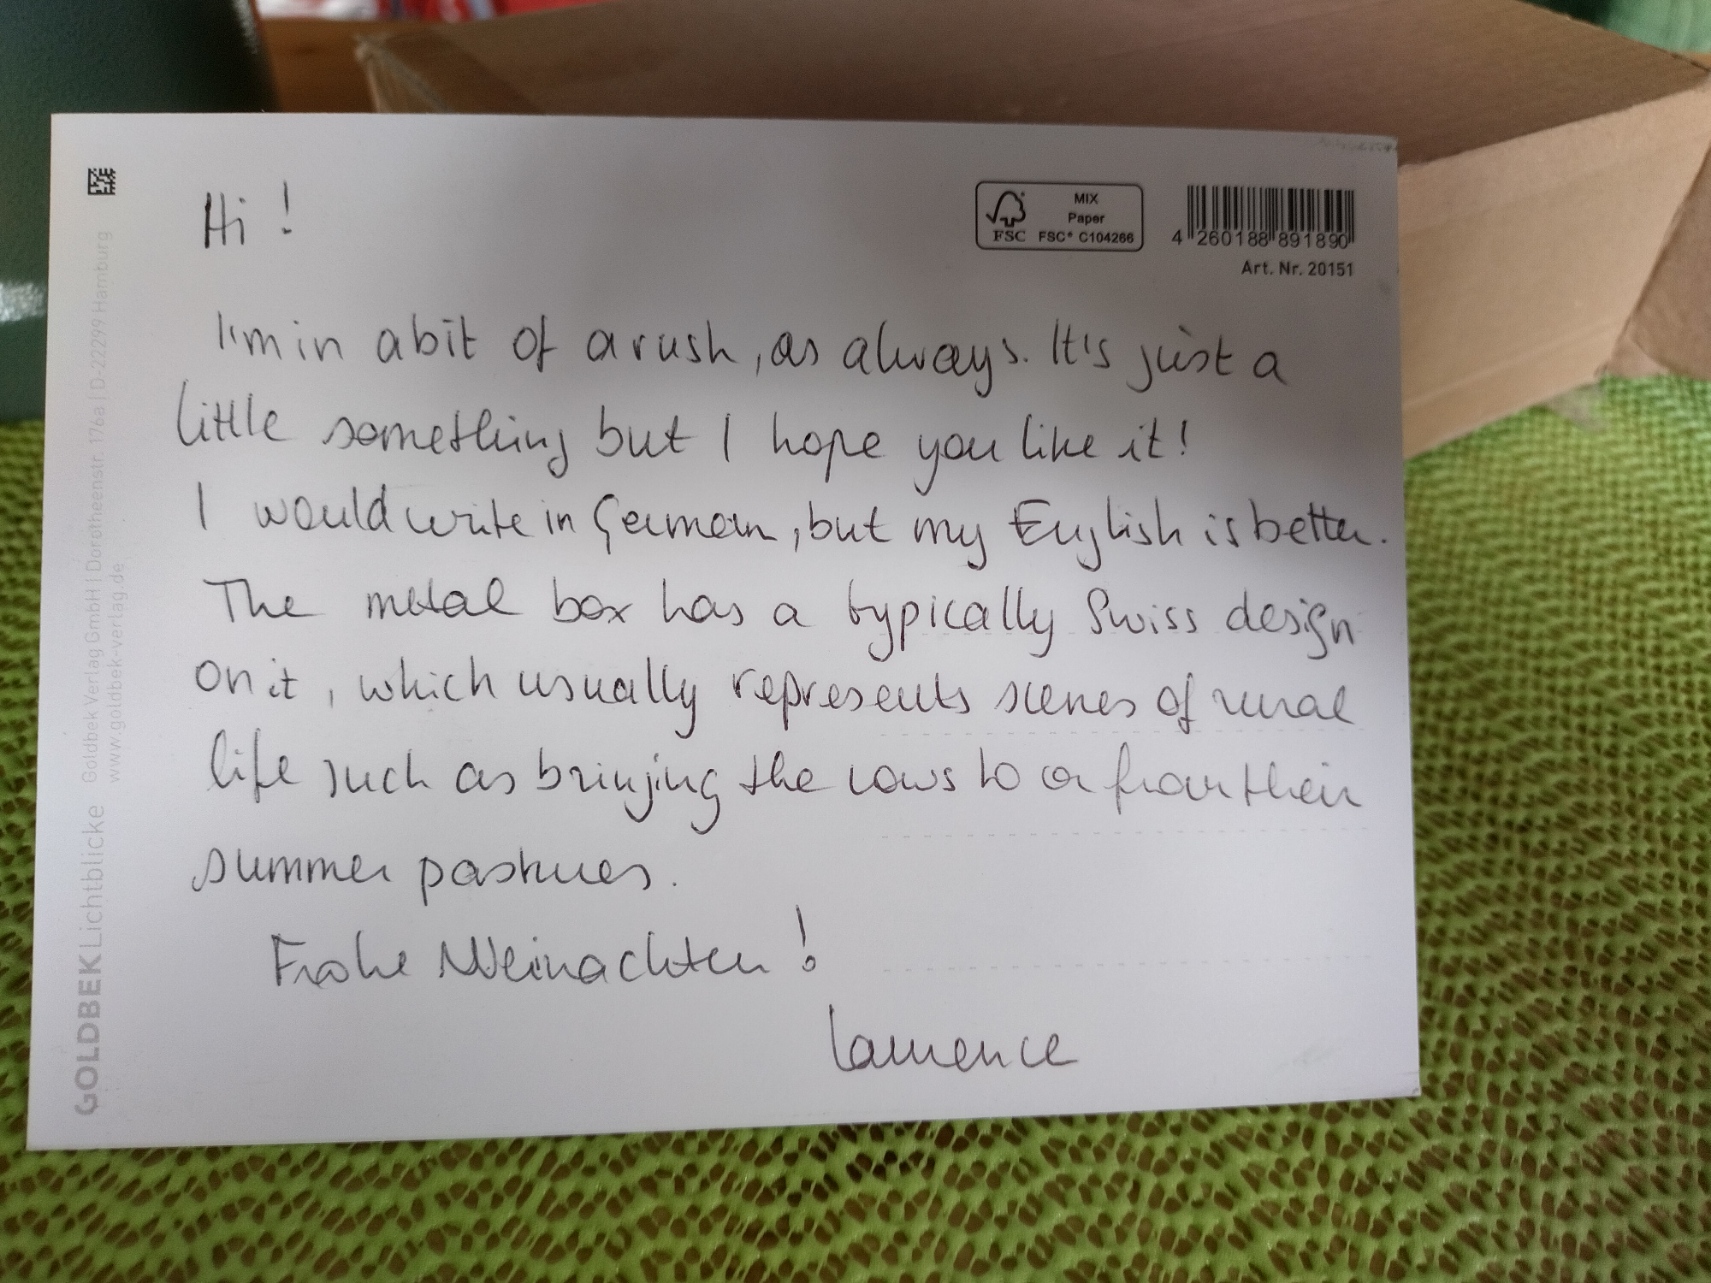 Hi !
MIX
Paper
FSC FSC® C104266
4 260188 891890
Art. Nr. 20151
I'm in a bit of a rush, as always. It's just a
little something but I hope you like it!
I would write in German, but my English is better.
The metal box has a typically Swiss design
on it, which usually represents scenes of rural
life such as bringing the cows to or from their
summer pastures.
Frohe Weinachten !
Laurence
GOLDBEK Lichtblicke Goldbek Verlag GmbH | Dorotheenstr. 176a | D-22299 Hamburg
www.goldbek-verlag.de